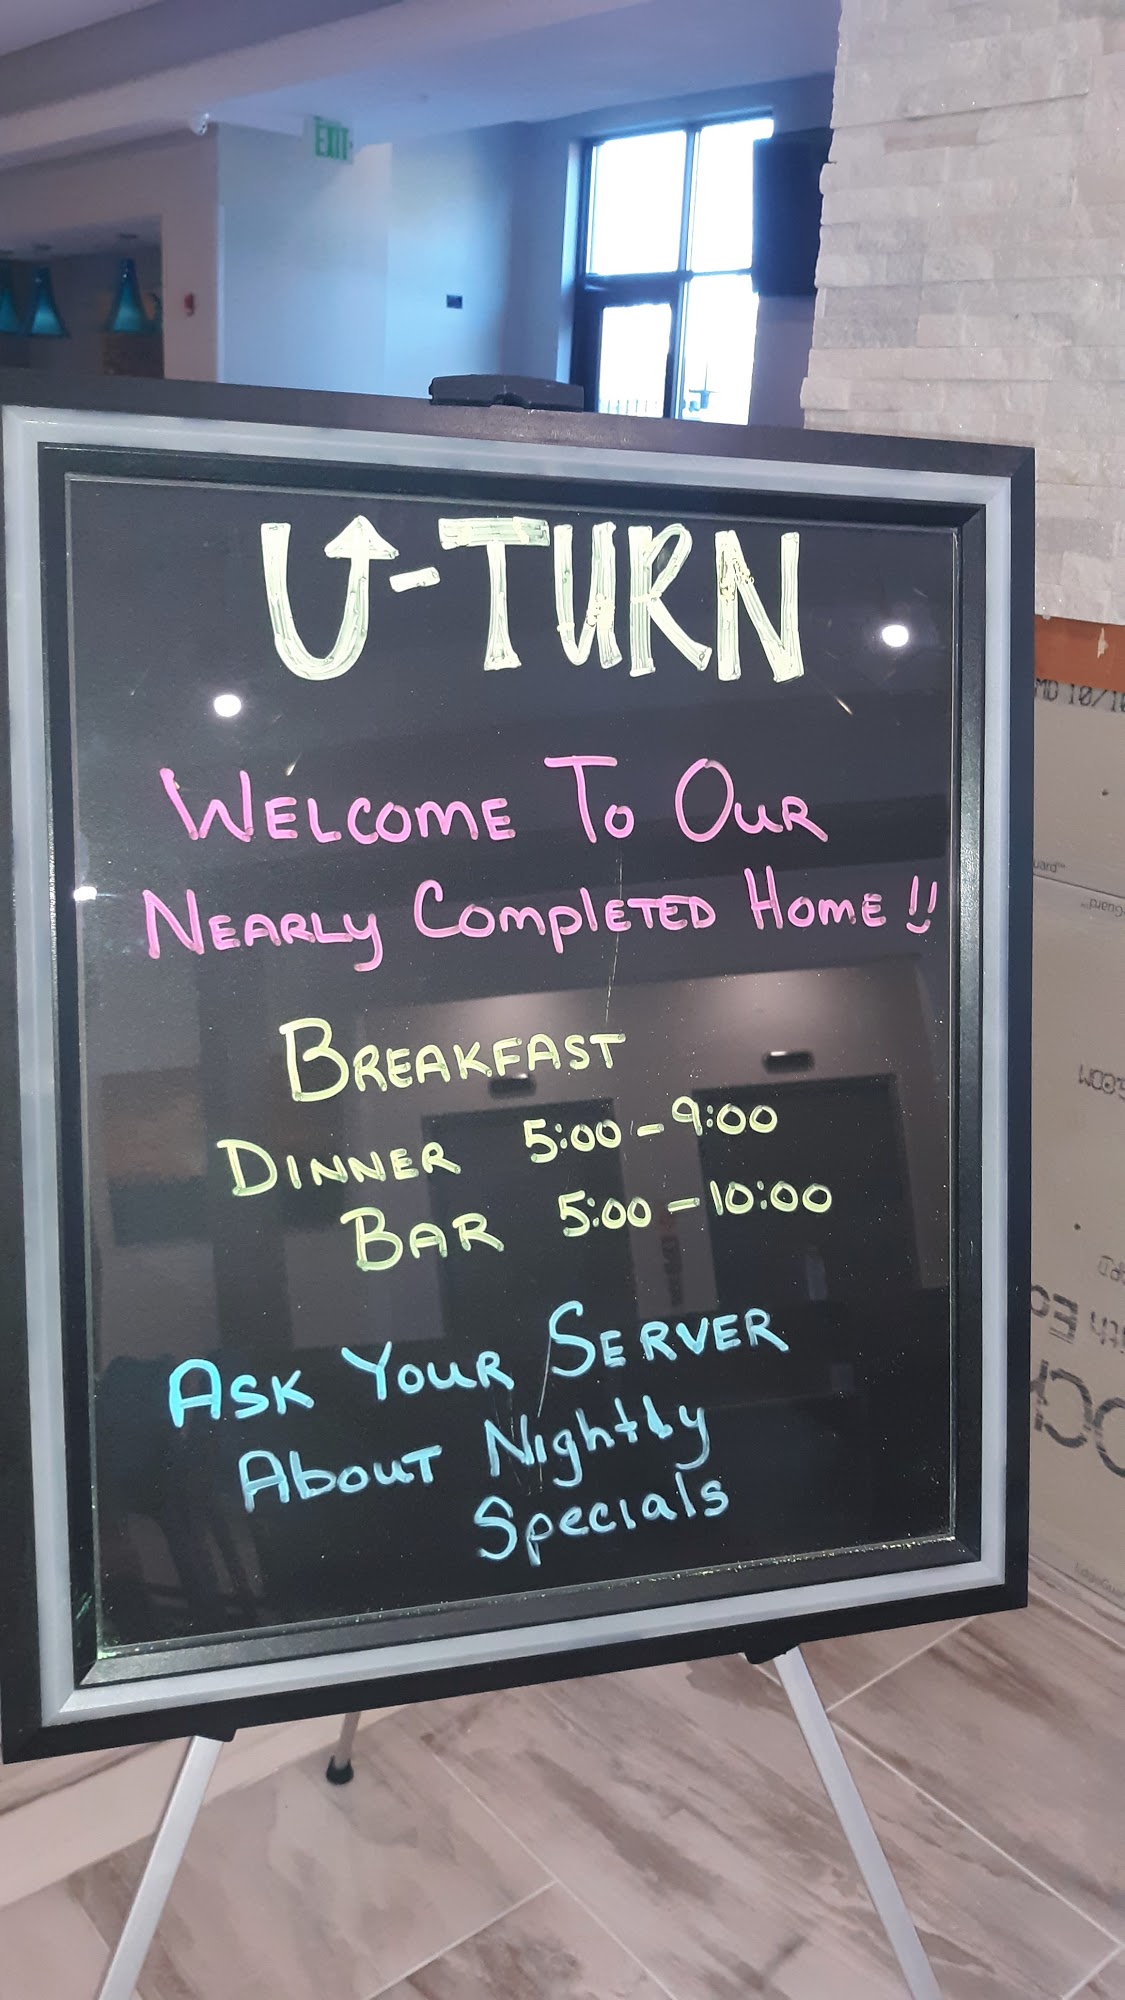 EXIT
U-TURN
WELCOME TO OUR
NEARLY COMPLETED HOME!!
BREAKFAST
DINNER 5:00-9:00
BAR 5:00-10:00
ASK YOUR SERVER
ABOUT Nightly
Specials
MD 10/10